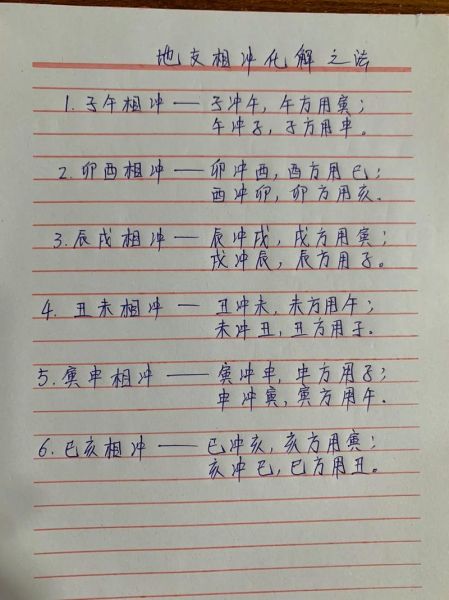 地支相冲化解之法
1. 子午相冲 —— 子冲午, 午方用寅;
午冲子, 子方用申。
2. 卯酉相冲 —— 卯冲酉, 酉方用巳;
酉冲卯, 卯方用亥.
3. 辰戌相冲 —— 辰冲戌, 戌方用寅;
戌冲辰, 辰方用子。
4. 丑未相冲 —— 丑冲未, 未方用午;
未冲丑, 丑方用子。
5. 寅申相冲 —— 寅冲申, 申方用子;
申冲寅, 寅方用午.
6. 巳亥相冲 —— 巳冲亥, 亥方用寅;
亥冲巳, 巳方用丑。